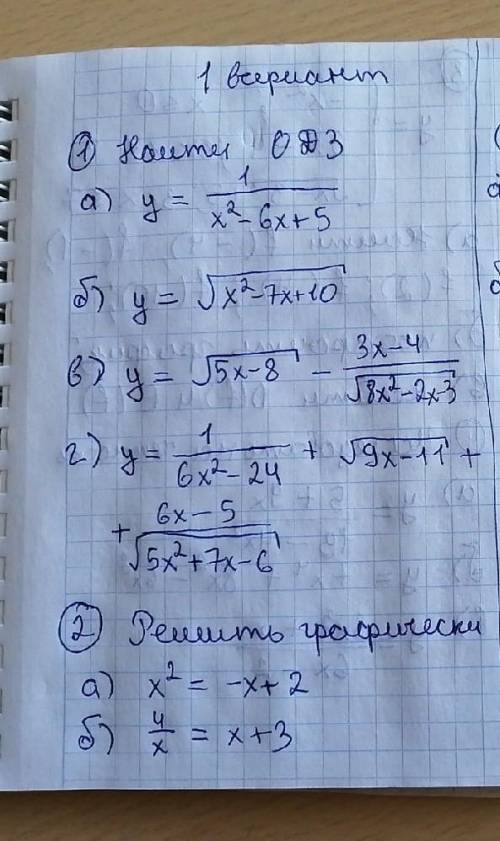 1 вариант
① Найти ОДЗ
а) y = 1/(x² - 6x + 5)
б) y = √(x² - 7x + 10)
в) y = √(5x - 8) - (3x - 4)/√(8x² - 2x - 3)
г) y = 1/(6x² - 24) + √(9x - 11) +
+ (6x - 5)/√(5x² + 7x - 6)
② Решить графически
а) x² = -x + 2
б) 4/x = x + 3